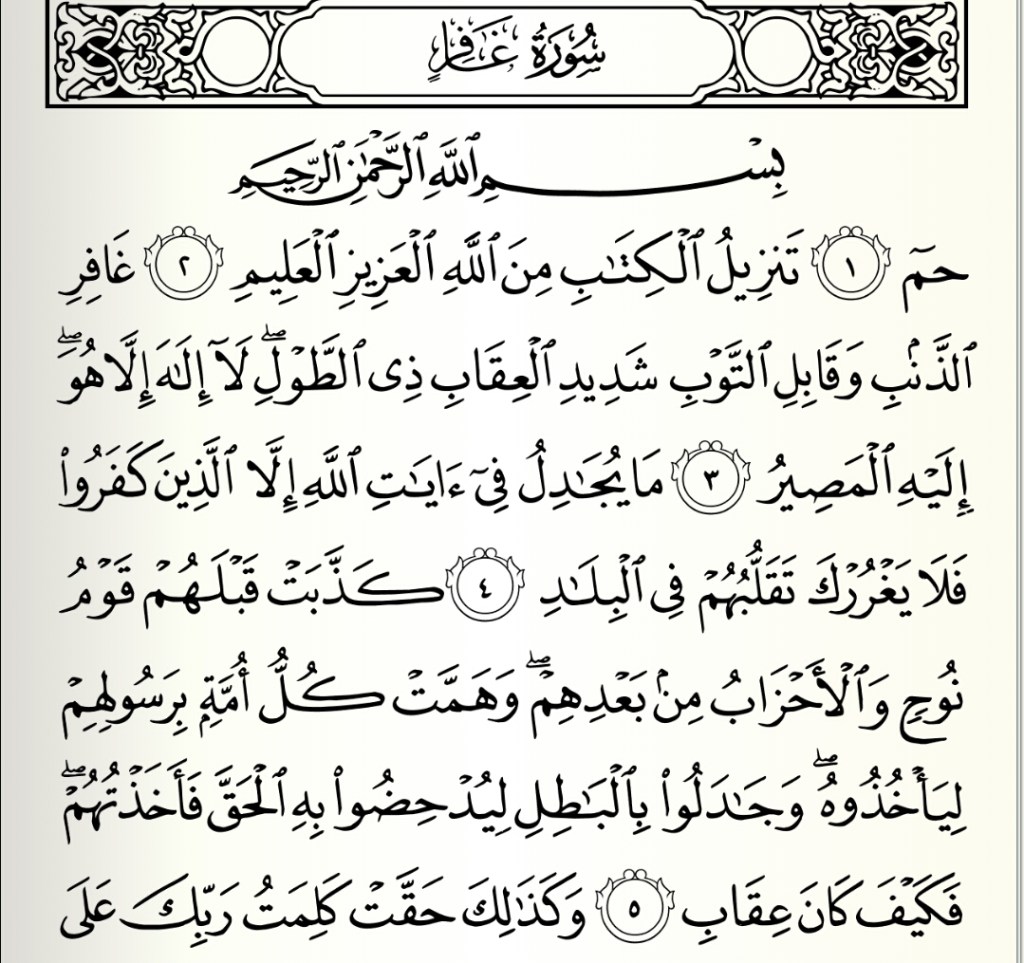 سُورَةُ غَافِرٍ
بِسْمِ ٱللَّهِ ٱلرَّحْمَٰنِ ٱلرَّحِيمِ
حمٓ ١ تَنزِيلُ ٱلْكِتَٰبِ مِنَ ٱللَّهِ ٱلْعَزِيزِ ٱلْعَلِيمِ ٢ غَافِرِ
ٱلذَّنۢبِ وَقَابِلِ ٱلتَّوْبِ شَدِيدِ ٱلْعِقَابِ ذِى ٱلطَّوْلِۖ لَآ إِلَٰهَ إِلَّا هُوَۖ
إِلَيْهِ ٱلْمَصِيرُ ٣ مَا يُجَٰدِلُ فِىٓ ءَايَٰتِ ٱللَّهِ إِلَّا ٱلَّذِينَ كَفَرُوا۟
فَلَا يَغْرُرْكَ تَقَلُّبُهُمْ فِى ٱلْبِلَٰدِ ٤ كَذَّبَتْ قَبْلَهُمْ قَوْمُ
نُوحٍ وَٱلْأَحْزَابُ مِنۢ بَعْدِهِمْۖ وَهَمَّتْ كُلُّ أُمَّةٍۭ بِرَسُولِهِمْ
لِيَأْخُذُوهُۖ وَجَٰدَلُوا۟ بِٱلْبَٰطِلِ لِيُدْحِضُوا۟ بِهِ ٱلْحَقَّ فَأَخَذْتُهُمْۖ
فَكَيْفَ كَانَ عِقَابِ ٥ وَكَذَٰلِكَ حَقَّتْ كَلِمَتُ رَبِّكَ عَلَى